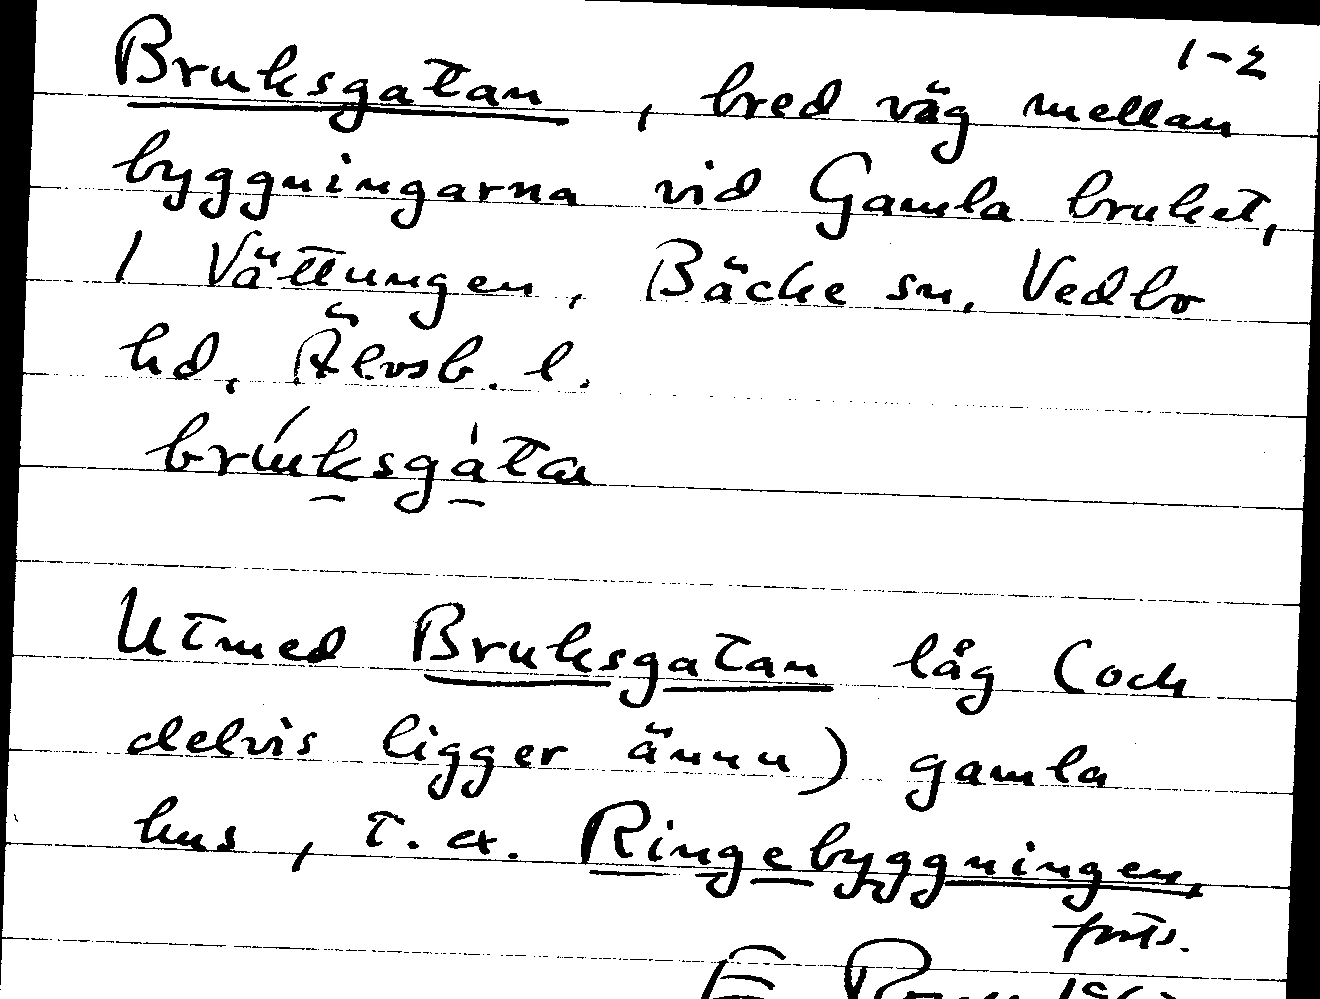 1-2
Bruksgatan, bred väg mellan
byggningarna vid Gamla bruket,
/ Vättungen, Bäcke sn, Vedbo
hd, Älvsb. l.
brúksgàtan
Utmed Bruksgatan låg (och
delvis ligger ännu) gamla
hus, t. ex. Ringebyggningen,
forts.